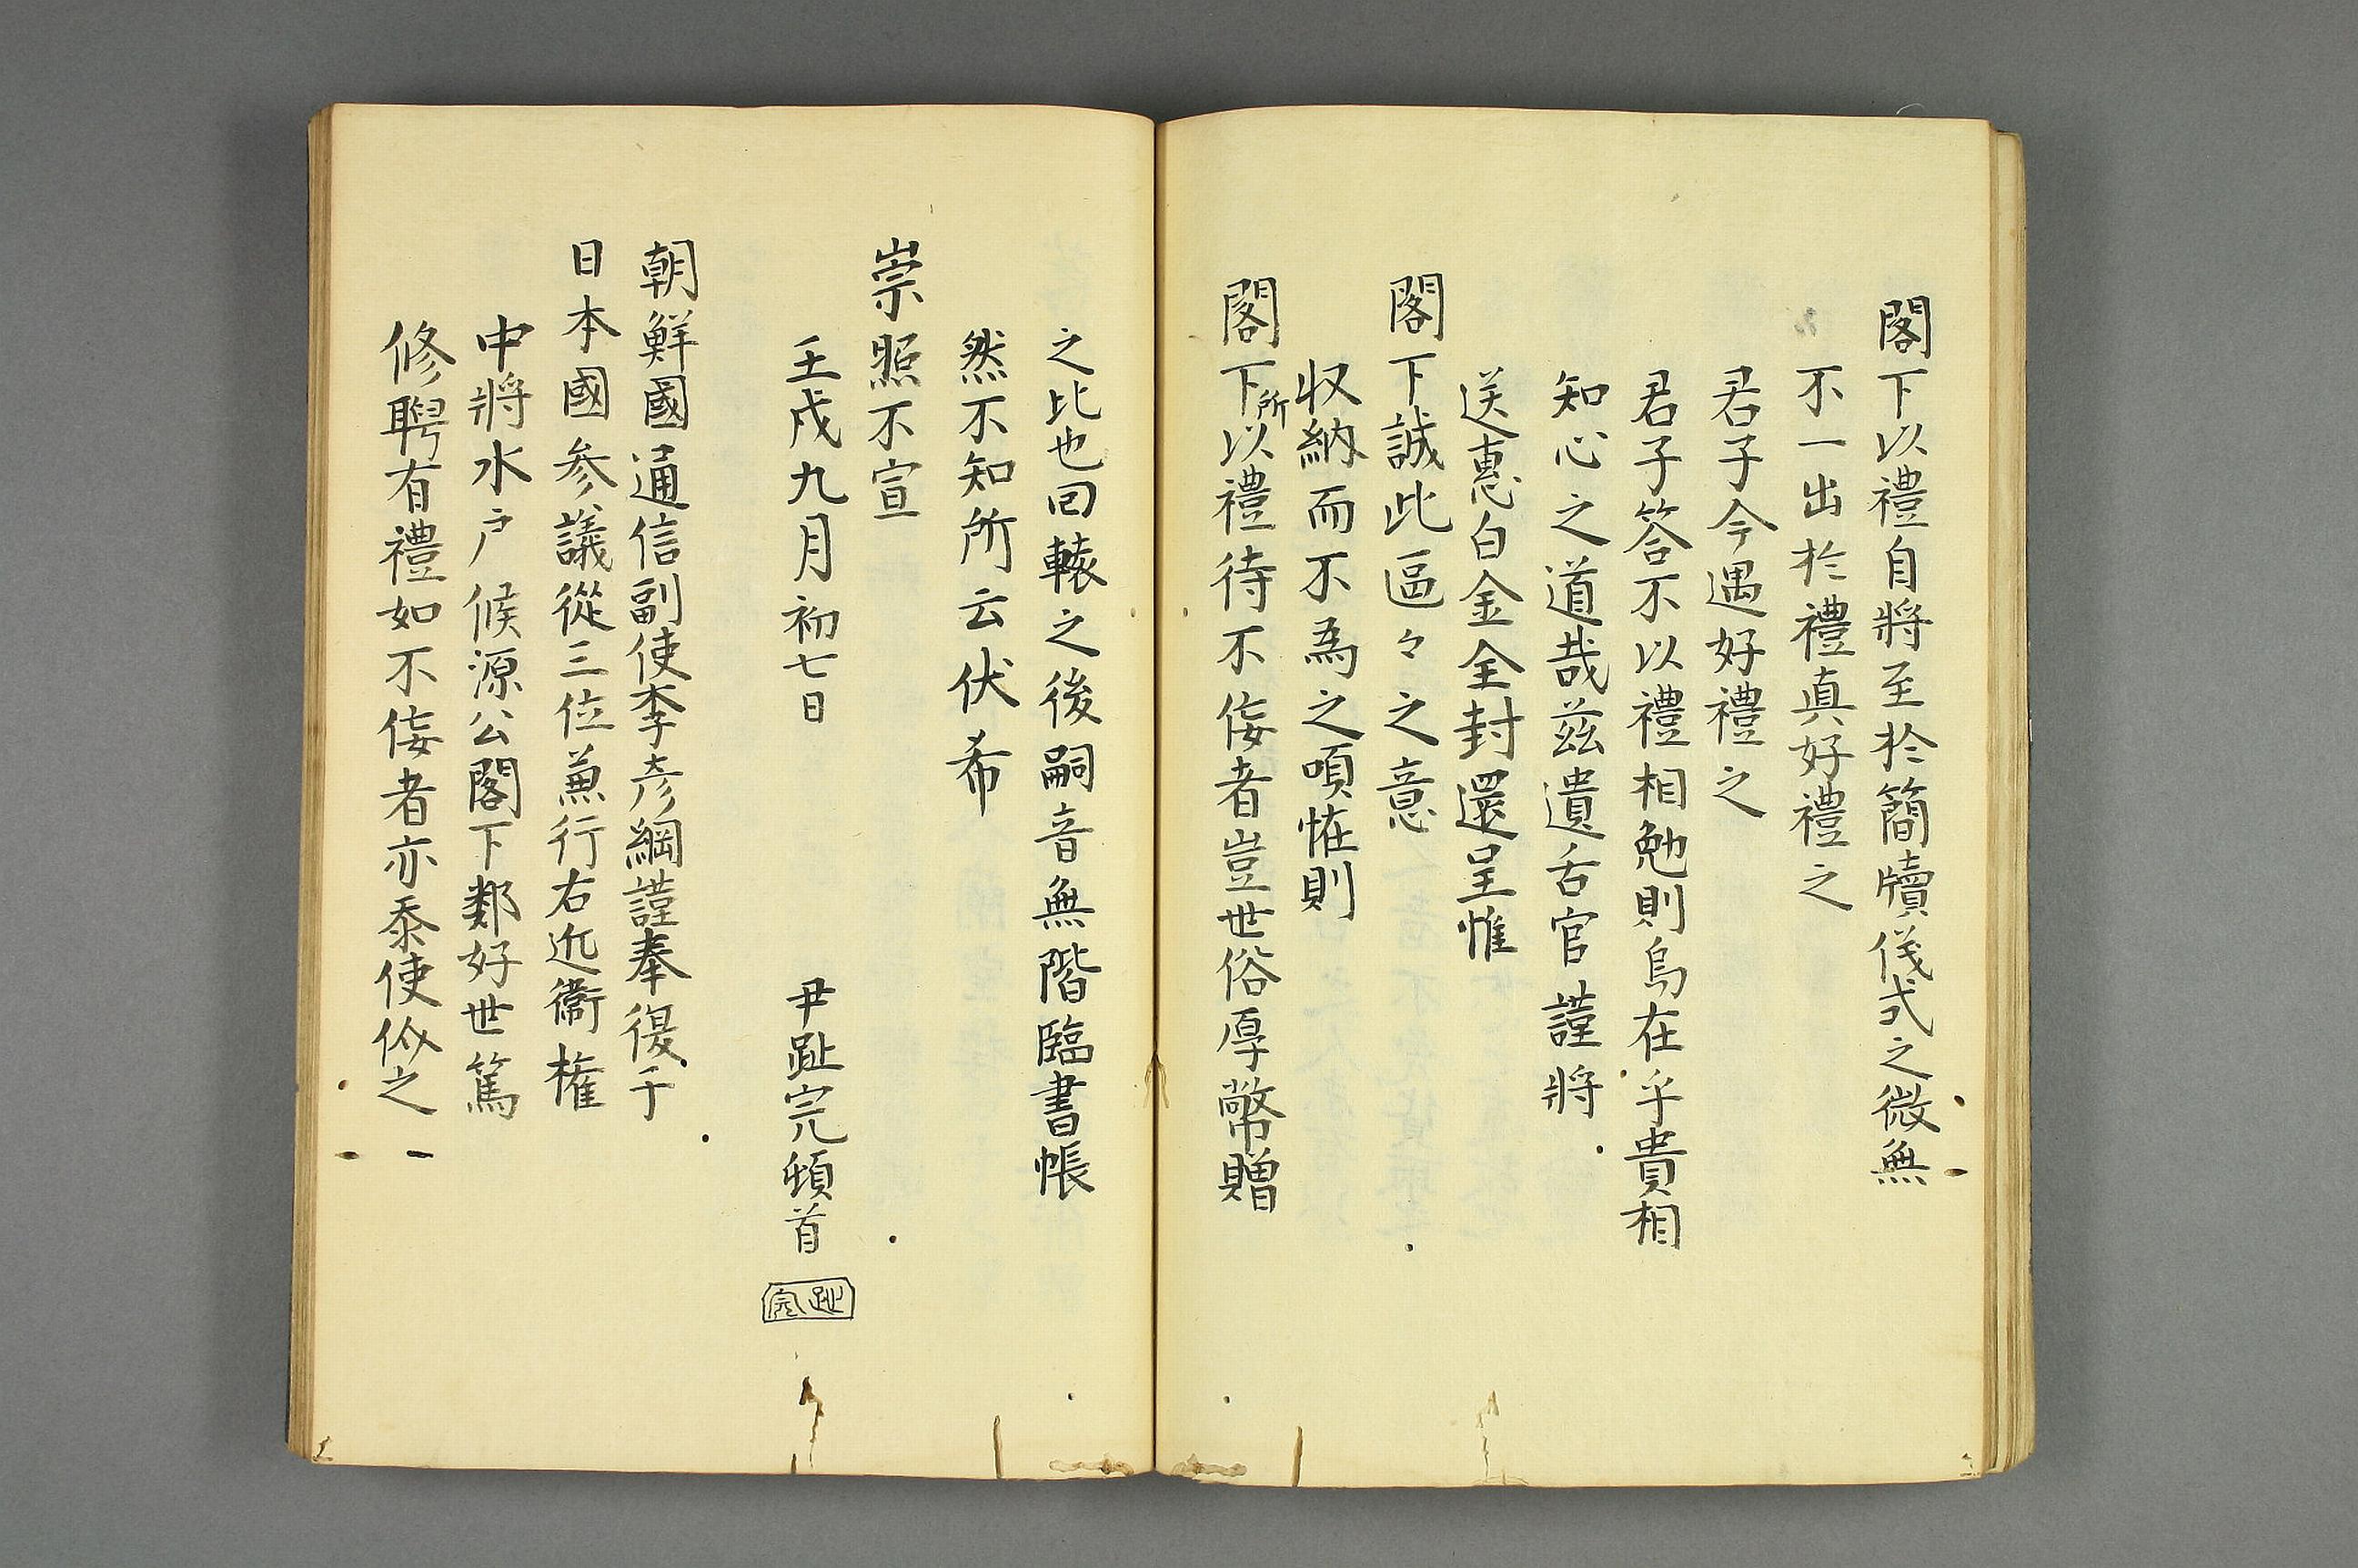 閣下以禮自將至於簡牘儀式之微無
不一出於禮真好禮之
君子今遇好禮之
君子答不以禮相勉則烏在乎貴相
知心之道哉茲遺舌官謹將
送惠白金全封還呈惟
閣下誠此區々之意
収納而不為之嗔恠則
閣下所以禮待不侫者豈世俗厚幣贈
之比也回轅之後嗣音無階臨書帳
然不知所云伏希
崇照不宣
壬戌九月初七日
尹趾完頓首
趾完
朝鮮國通信副使李彦綱謹奉復于
日本國參議從三位兼行右近衞權
中將水戶候源公閣下鄰好世篤
修聘有禮如不侫者亦忝使似之